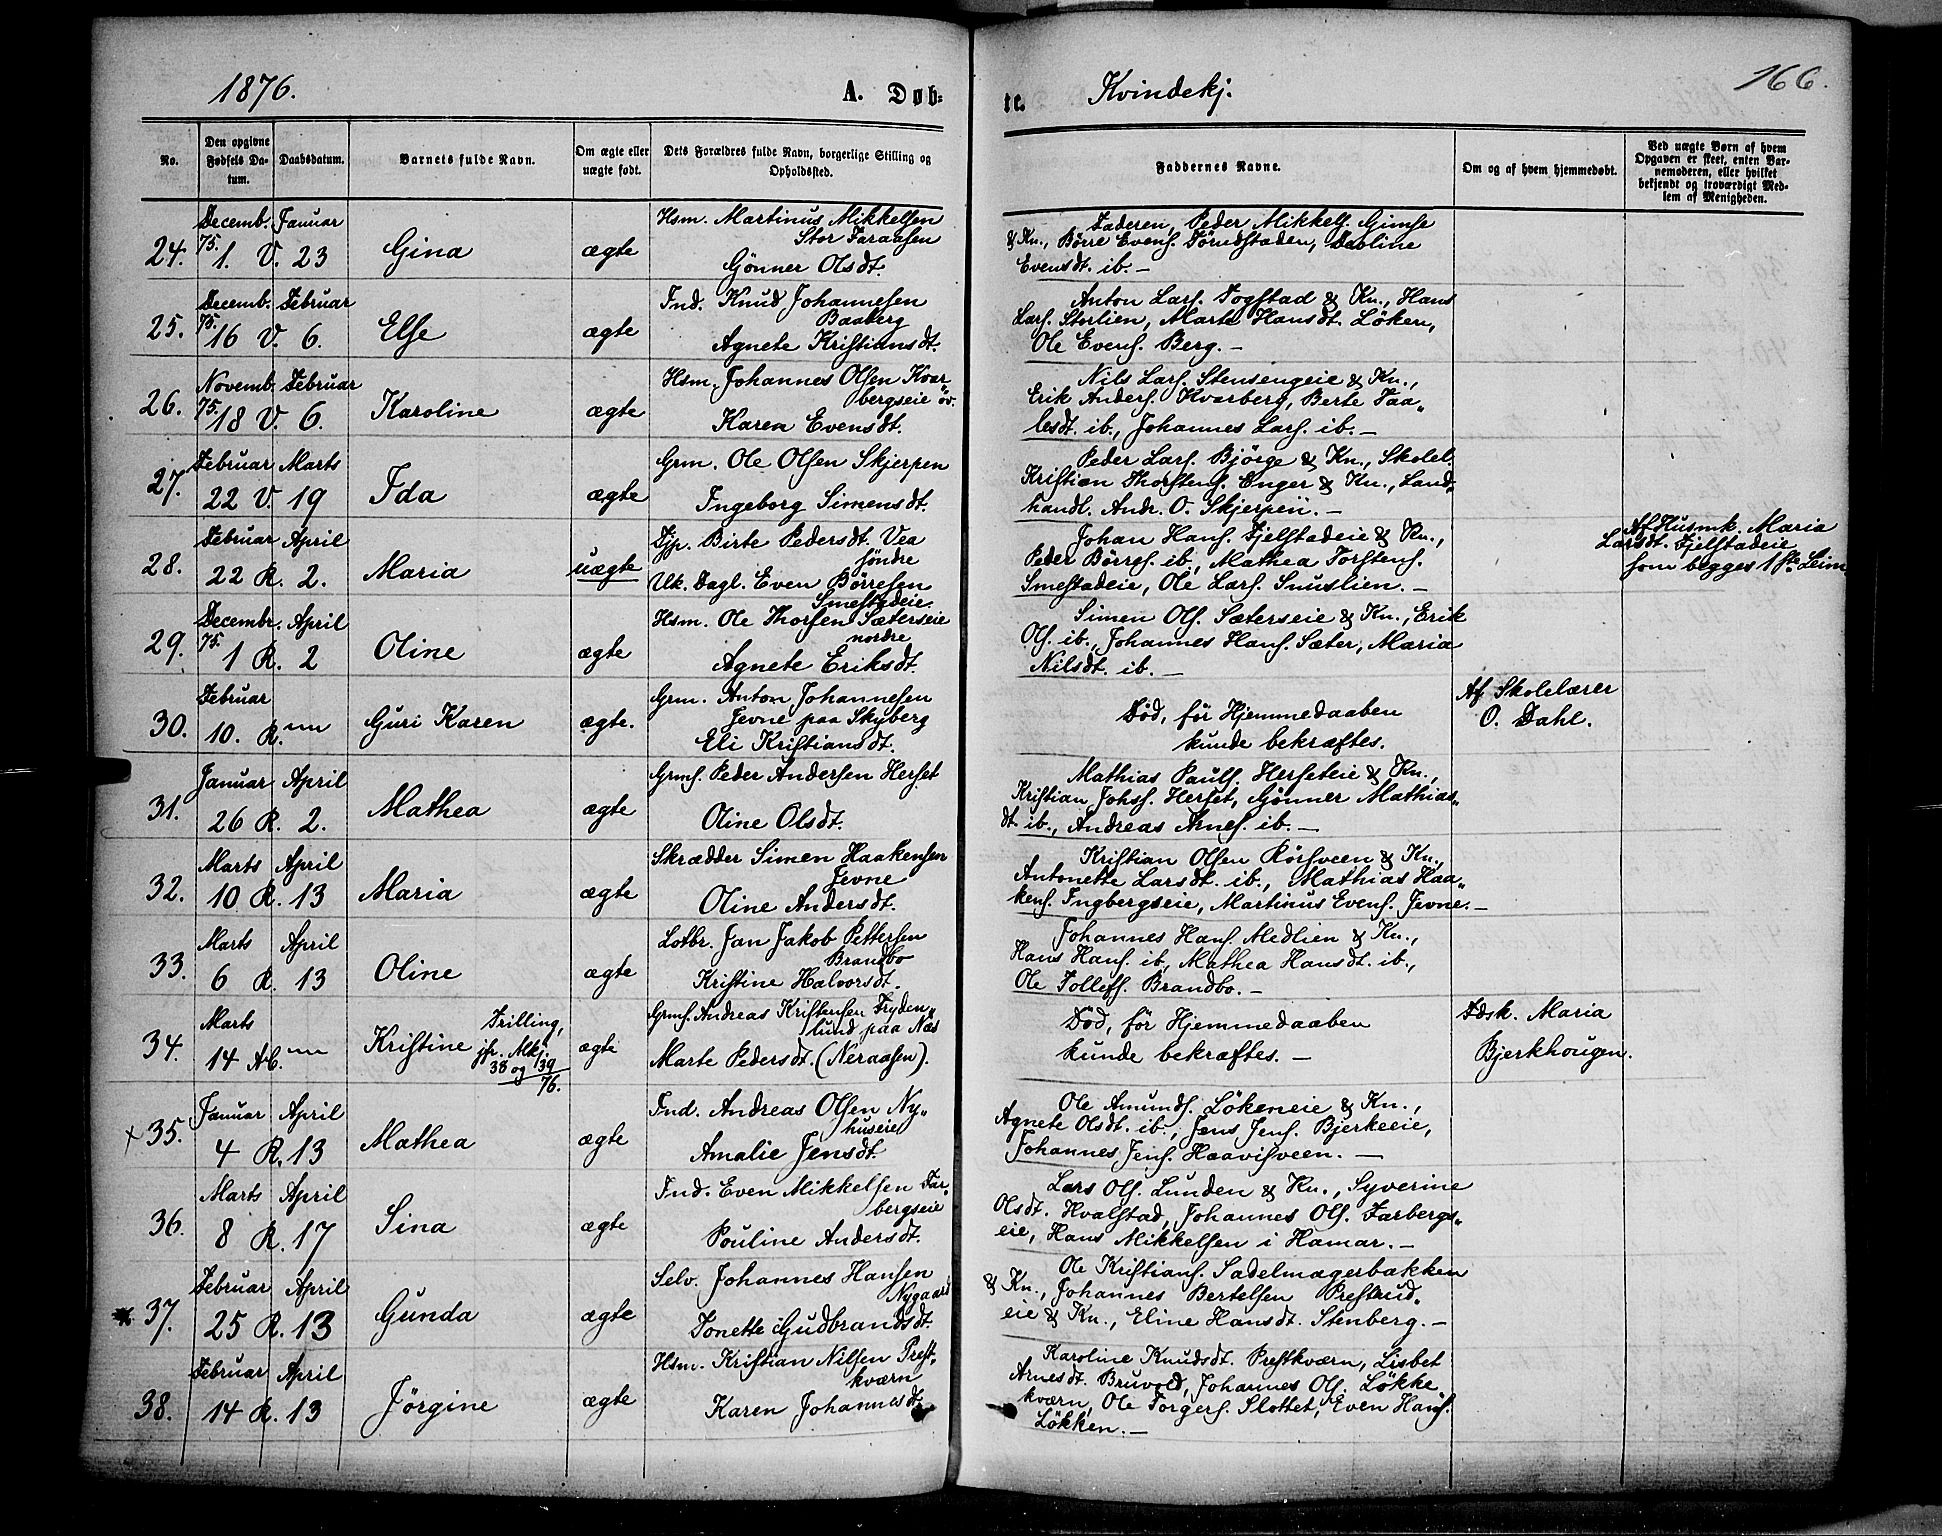 1876.
A. Døb-
te.
Kvindekj.
166.
No.
Den opgivne Fødsels Da-tum.
Daabsdatum.
Barnets fulde Navn.
Om ægte eller uægte født.
Dets Forældres fulde Navn, borgerlige Stilling og Opholdssted.
Faddernes Navne.
Om og af hvem hjemmedøbt.
Ved uægte Børn af hvem Opgaven er skeet, enten Bar-nemoderen, eller hvilket bekjendt og troværdigt Med-lem af Menigheden.
24. Decemb. 75. 1. V. Januar 23 Gina ægte
Hsm. Martinus Mikkelsen
Stor Faraasen
Gönner Olsdt.
Faderen, Peder Mikkels. Gimse
& Kn., Börre Evens. Töndstaden, Deoline
Evensdt. ib. —
25. Decemb. 75. 16 V. Februar 6. Else ægte
Fnd. Knud Johannesen
Baaberg
Agnete Kristiansdt.
Anton Lars. Fogstad & Kn., Hans
Lars. Storlien, Marte Hansdt. Löken,
Ole Evens. Berg. —
26. Novemb. 75. 18 V. Februar 6. Karoline ægte
Hsm. Johannes Olsen Kvar-
bergseie öv.
Karen Evensdt.
Nils Lars. Stensengeie & Kn.,
Erik Anders. Kvarberg, Berte Taa-
lesdt. ib., Johannes Lars. ib. —
27. Februar 22 V. Marts 19 Ida ægte
Grm. Ole Olsen Skjerpen
Ingeborg Simensdt.
Peder Lars. Björge & Kn., Skolel.
Kristian Thorstens. Enger & Kn., Land-
handl. Andr. O. Skjerpen. —
28. Februar 22 R. April 2. Maria uægte
Pjp. Birte Pedersdt. Vea
söndre
Uk. Dagl. Even Börresen
Smestadeie.
Johan Hans. Fjelstadeie & Kn.,
Peder Börres. ib., Mathea Torstens.
Smestadeie, Ole Lars. Snuslien. —
Af Husmk. Maria
Larsdt. Fjelstadeie
som begges 1ste Leierm.
29. Decembr. 75. 1 R. April 2 Oline ægte
Hsm. Ole Thorsen Sæterseie
nordre
Agnete Eriksdt.
Simen Ols. Sæterseie & Kn., Erik
Ols. ib., Johannes Hans. Sæter, Maria
Nilsdt. ib. —
30. Februar 10. R. Guri Karen ægte.
Grm. Anton Johannesen
Jevne paa Skyberg
Eli Kristiansdt.
Död, för Hjemmedaaben
kunde bekræftes.
Af Skolelærer
O. Dahl.
31. Januar 26 R. April 2. Mathea ægte
Grms. Peder Andersen Herset.
Oline Olsdt.
Mathias Pauls. Herseteie & Kn.,
Kristian Johs. Herset, Gönner Mathias-
dt. ib., Andreas Arnes. ib. —
32. Marts 10 R. April 13 Maria ægte
Skrædder Simen Haakensen
Jevne
Oline Andersdt.
Kristian Olsen Rörsveen & Kn.,
Antonette Larsdt. ib., Mathias Haa-
kens. Ingbergseie, Martinus Evens. Jevne. —
33. Marts 6 R. April 13 Oline ægte
Lotbr. Jan Jakob Pettersen
Brandbo
Kristine Halvorsdt.
Johannes Hans. Medlien & Kn.,
Hans Hans. ib, Mathea Hansdt. ib.,
Ole Tollefs. Brandbo. —
34. Marts 14 Kristine Trilling, jfr. Mkj. 38 og 39 / 76. ægte
Grms. Andreas Kristensen Fryden-
lund paa Næs
Marte Pedersdt. (Neraasen).
Död, för Hjemmedaaben
kunde bekræftes. —
Fdsk. Maria
Bjerkhougen.
35. Januar 4 R. April 13 Mathea ægte
Fnd. Andreas Olsen Ny-
huseie
Amalie Jensdt
Ole Amunds. Lökeneie & Kn.,
Agnete Olsdt. ib., Jens Jens. Bjerkeeie,
Johannes Jens. Haavisveen. —
36. Marts 8 R. April 17 Sina ægte
Fnd. Even Mikkelsen Far-
bergseie
Pouline Andersdt.
Lars Ols. Lunden & Kn., Syverine
Olsdt. Hvalstad, Johannes Ols. Farbergs-
eie, Hans Mikkelsen i Hamar. —
37. Februar 25 R. April 13 Gunda ægte
Selv. Johannes Hansen
Nygaard
Tonette Gudbrandsdt.
Ole Kristians. Sadelmagerbakken
& Kn., Johannes Bertelsen Prestrud-
eie & Kn., Eline Hansdt. Stenberg. —
38. Februar 14 R. April 13 Jörgine ægte
Hsm. Kristian Nilsen Prest-
kværn
Karen Johannesdt
Karoline Knudsdt. Prestkværn, Lisbet
Arnesdt. Bruvold, Johannes Ols. Lökke
kværn, Ole Torgers. Slottet, Even Hans.
Lökken. —